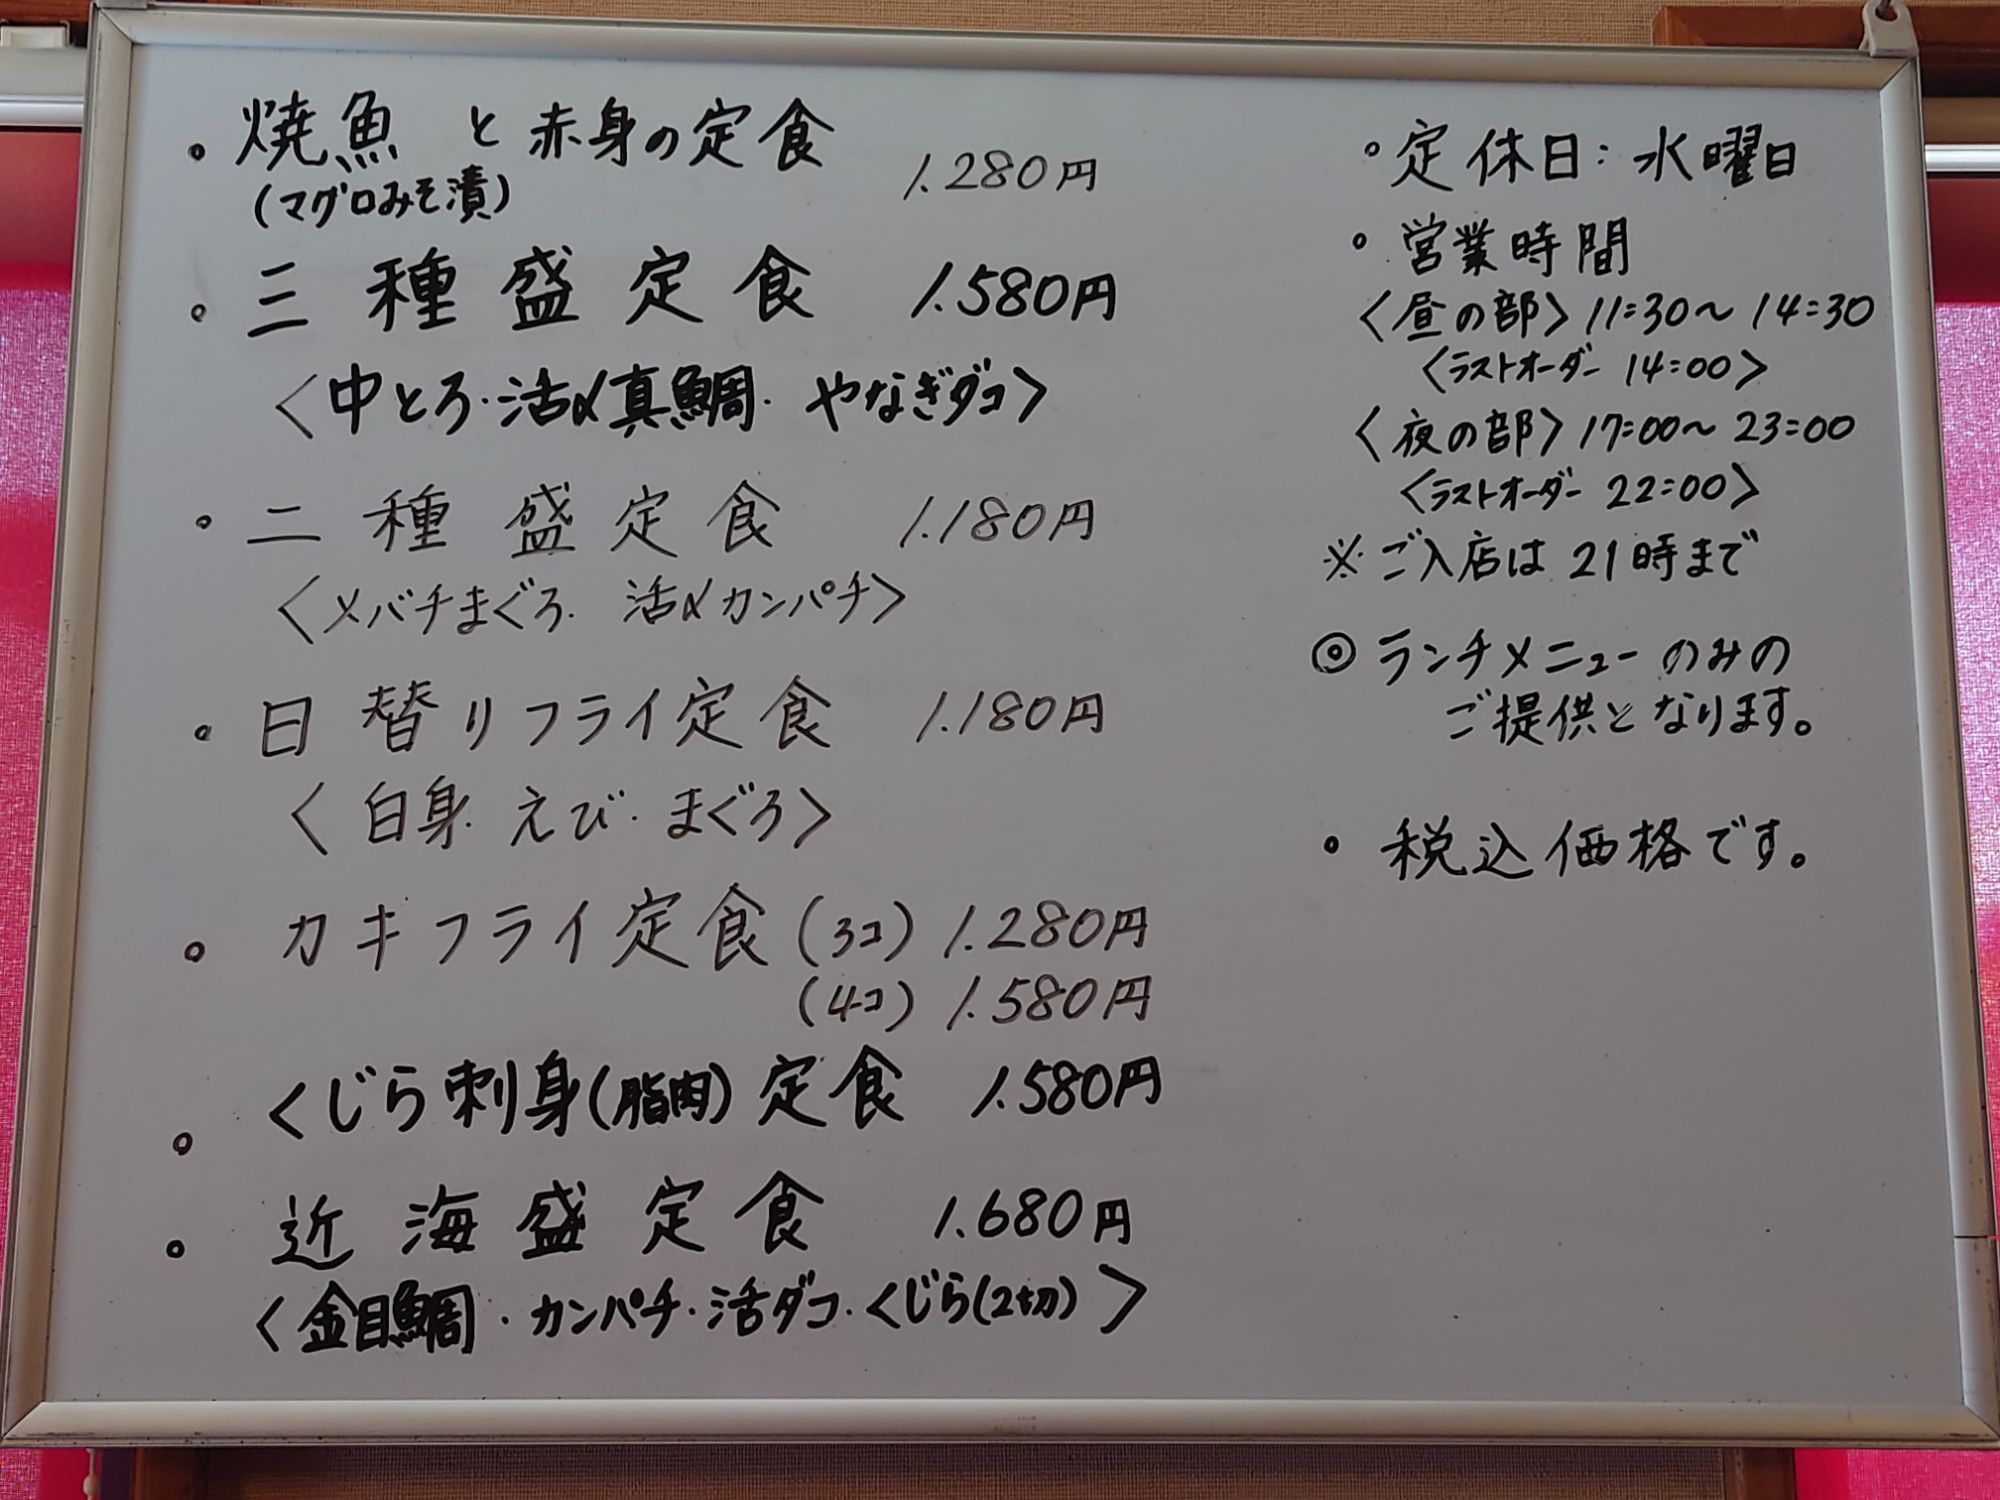 。焼魚 と 赤身の定食 1.280円
(マグロみそ漬)
。三種盛定食 1.580円
〈中とろ・活〆真鯛・やなぎダコ〉
。二種盛定食 1.180円
〈メバチまぐろ・活〆カンパチ〉
。日替りフライ定食 1.180円
〈白身・えび・まぐろ〉
。カキフライ定食(3コ) 1.280円
(4コ) 1.580円
。くじら刺身(脂肉)定食 1.580円
。近海盛定食 1.680円
〈金目鯛・カンパチ・活ダコ・くじら(2切)〉
。定休日:水曜日
。営業時間
〈昼の部〉11:30〜14:30
〈ラストオーダー 14:00〉
〈夜の部〉17:00〜23:00
〈ラストオーダー 22:00〉
※ご入店は21時まで
◎ランチメニューのみの
ご提供となります。
。税込価格です。